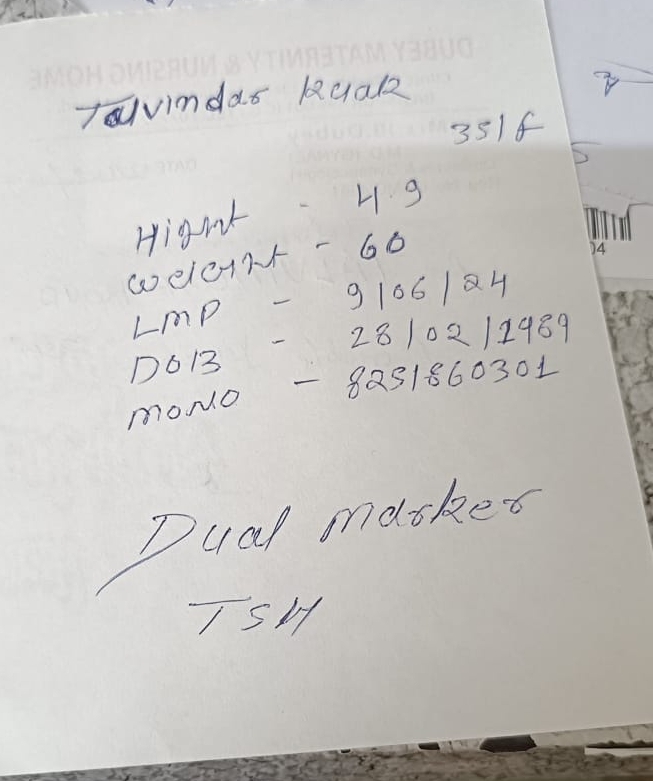 Talvindar Kuar
35/f
Hignt - 4.9
Weignt - 60
LMP - 9/06/24
DOB - 28/02/1989
MONO - 8251860301
Dual marker
TSH